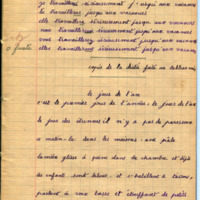 je travaillerai sérieusement jusqu'aux vacances
tu travailleras jusqu'aux vacances
elle travaillera sérieusement jusqu'aux vacances
nous travaillerons sérieusement jusqu'aux vacances
vous travaillerez sérieusement jusqu'aux vacances
elles travailleront sérieusement jusqu'aux vacances
0 faute
copie de la dictée faite au tableau
le jour de l'an
c'est le premier jour de l'année, le jour de l'an
le jour des étrennes il n'y a pas de paresseux
ce matin-là dans les maisons une pâle
lumière glisse à peine dans la chambre et déjà
les enfants sont debout et s'habillent à tâtons,
parlant à voix basse et étouffant de petits